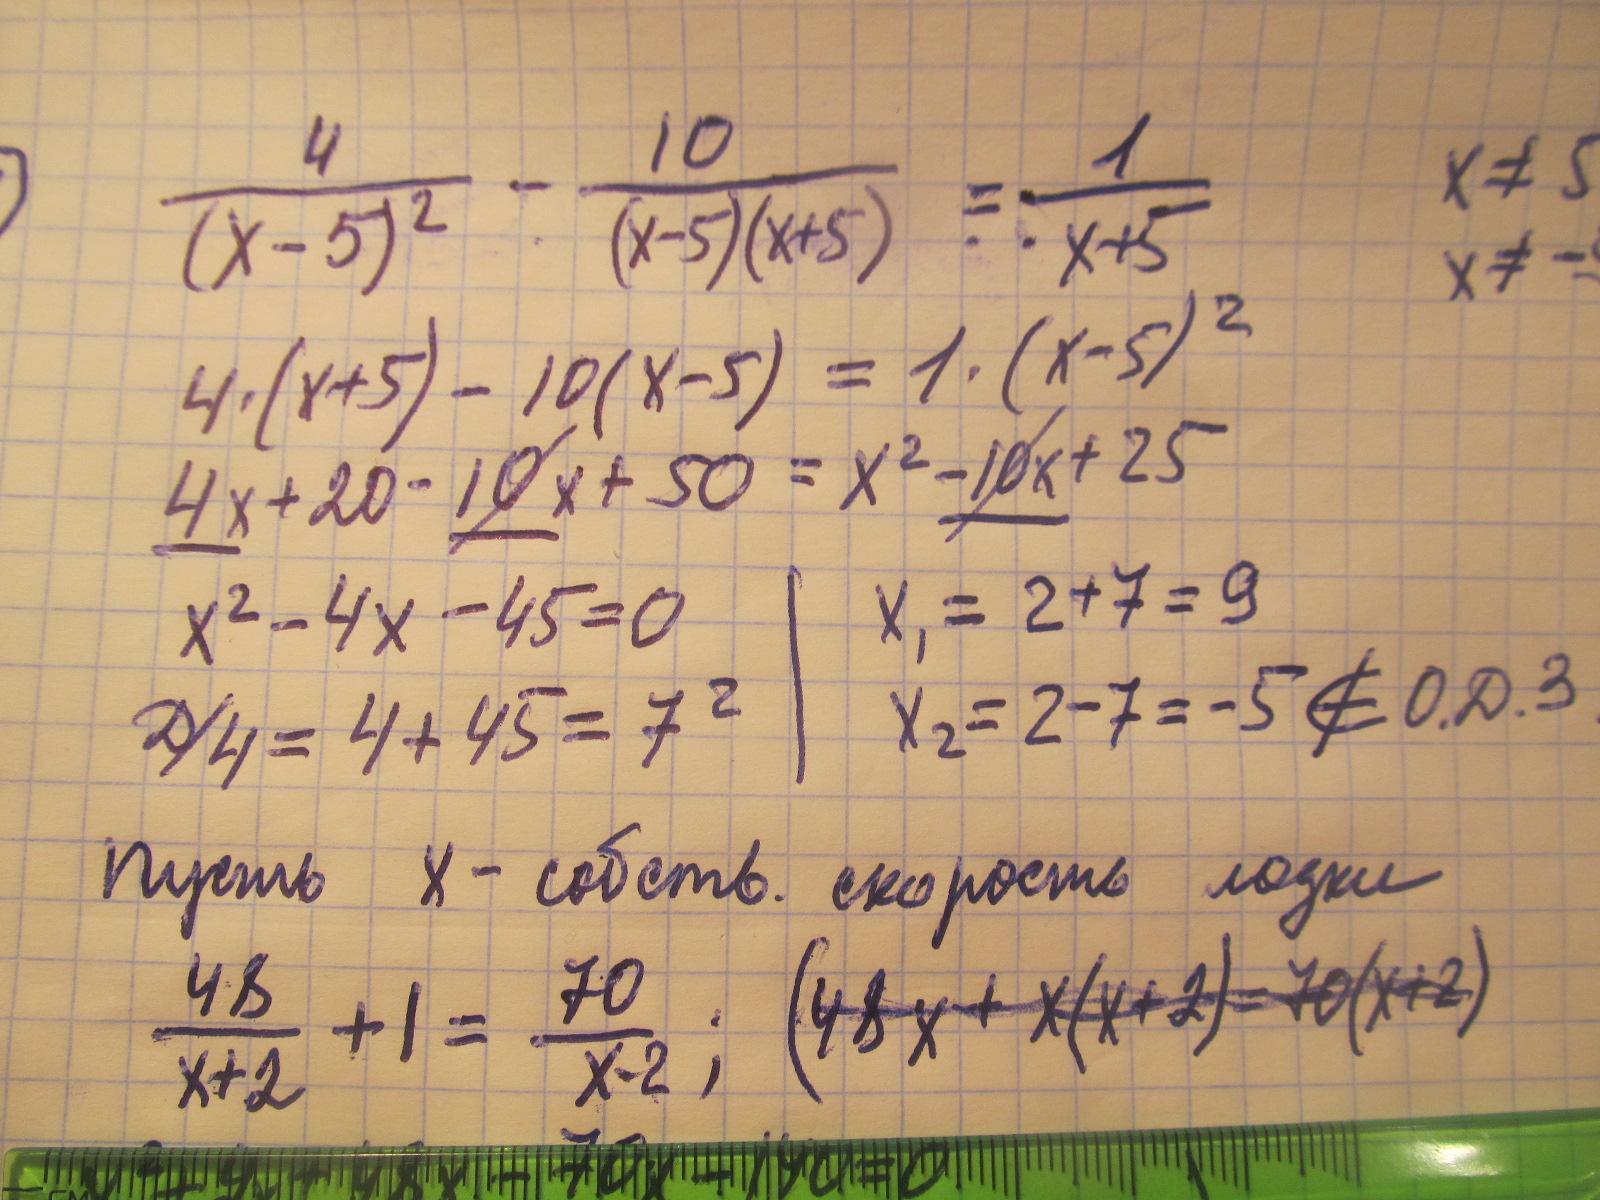 4/(x-5)² - 10/((x-5)(x+5)) = 1/(x+5) x ≠ 5
x ≠ -
4·(x+5) - 10(x-5) = 1·(x-5)²
4x+20-10x+50 = x²-10x+25
x²-4x-45=0 x₁ = 2+7=9
D/4 = 4+45=7² x₂=2-7=-5 ∉ О.Д.З.
Пусть x - собств. скорость лодки
48/(x+2) +1 = 70/(x-2) ; (48x + x(x+2)=70(x+2)
70x-140=0
см